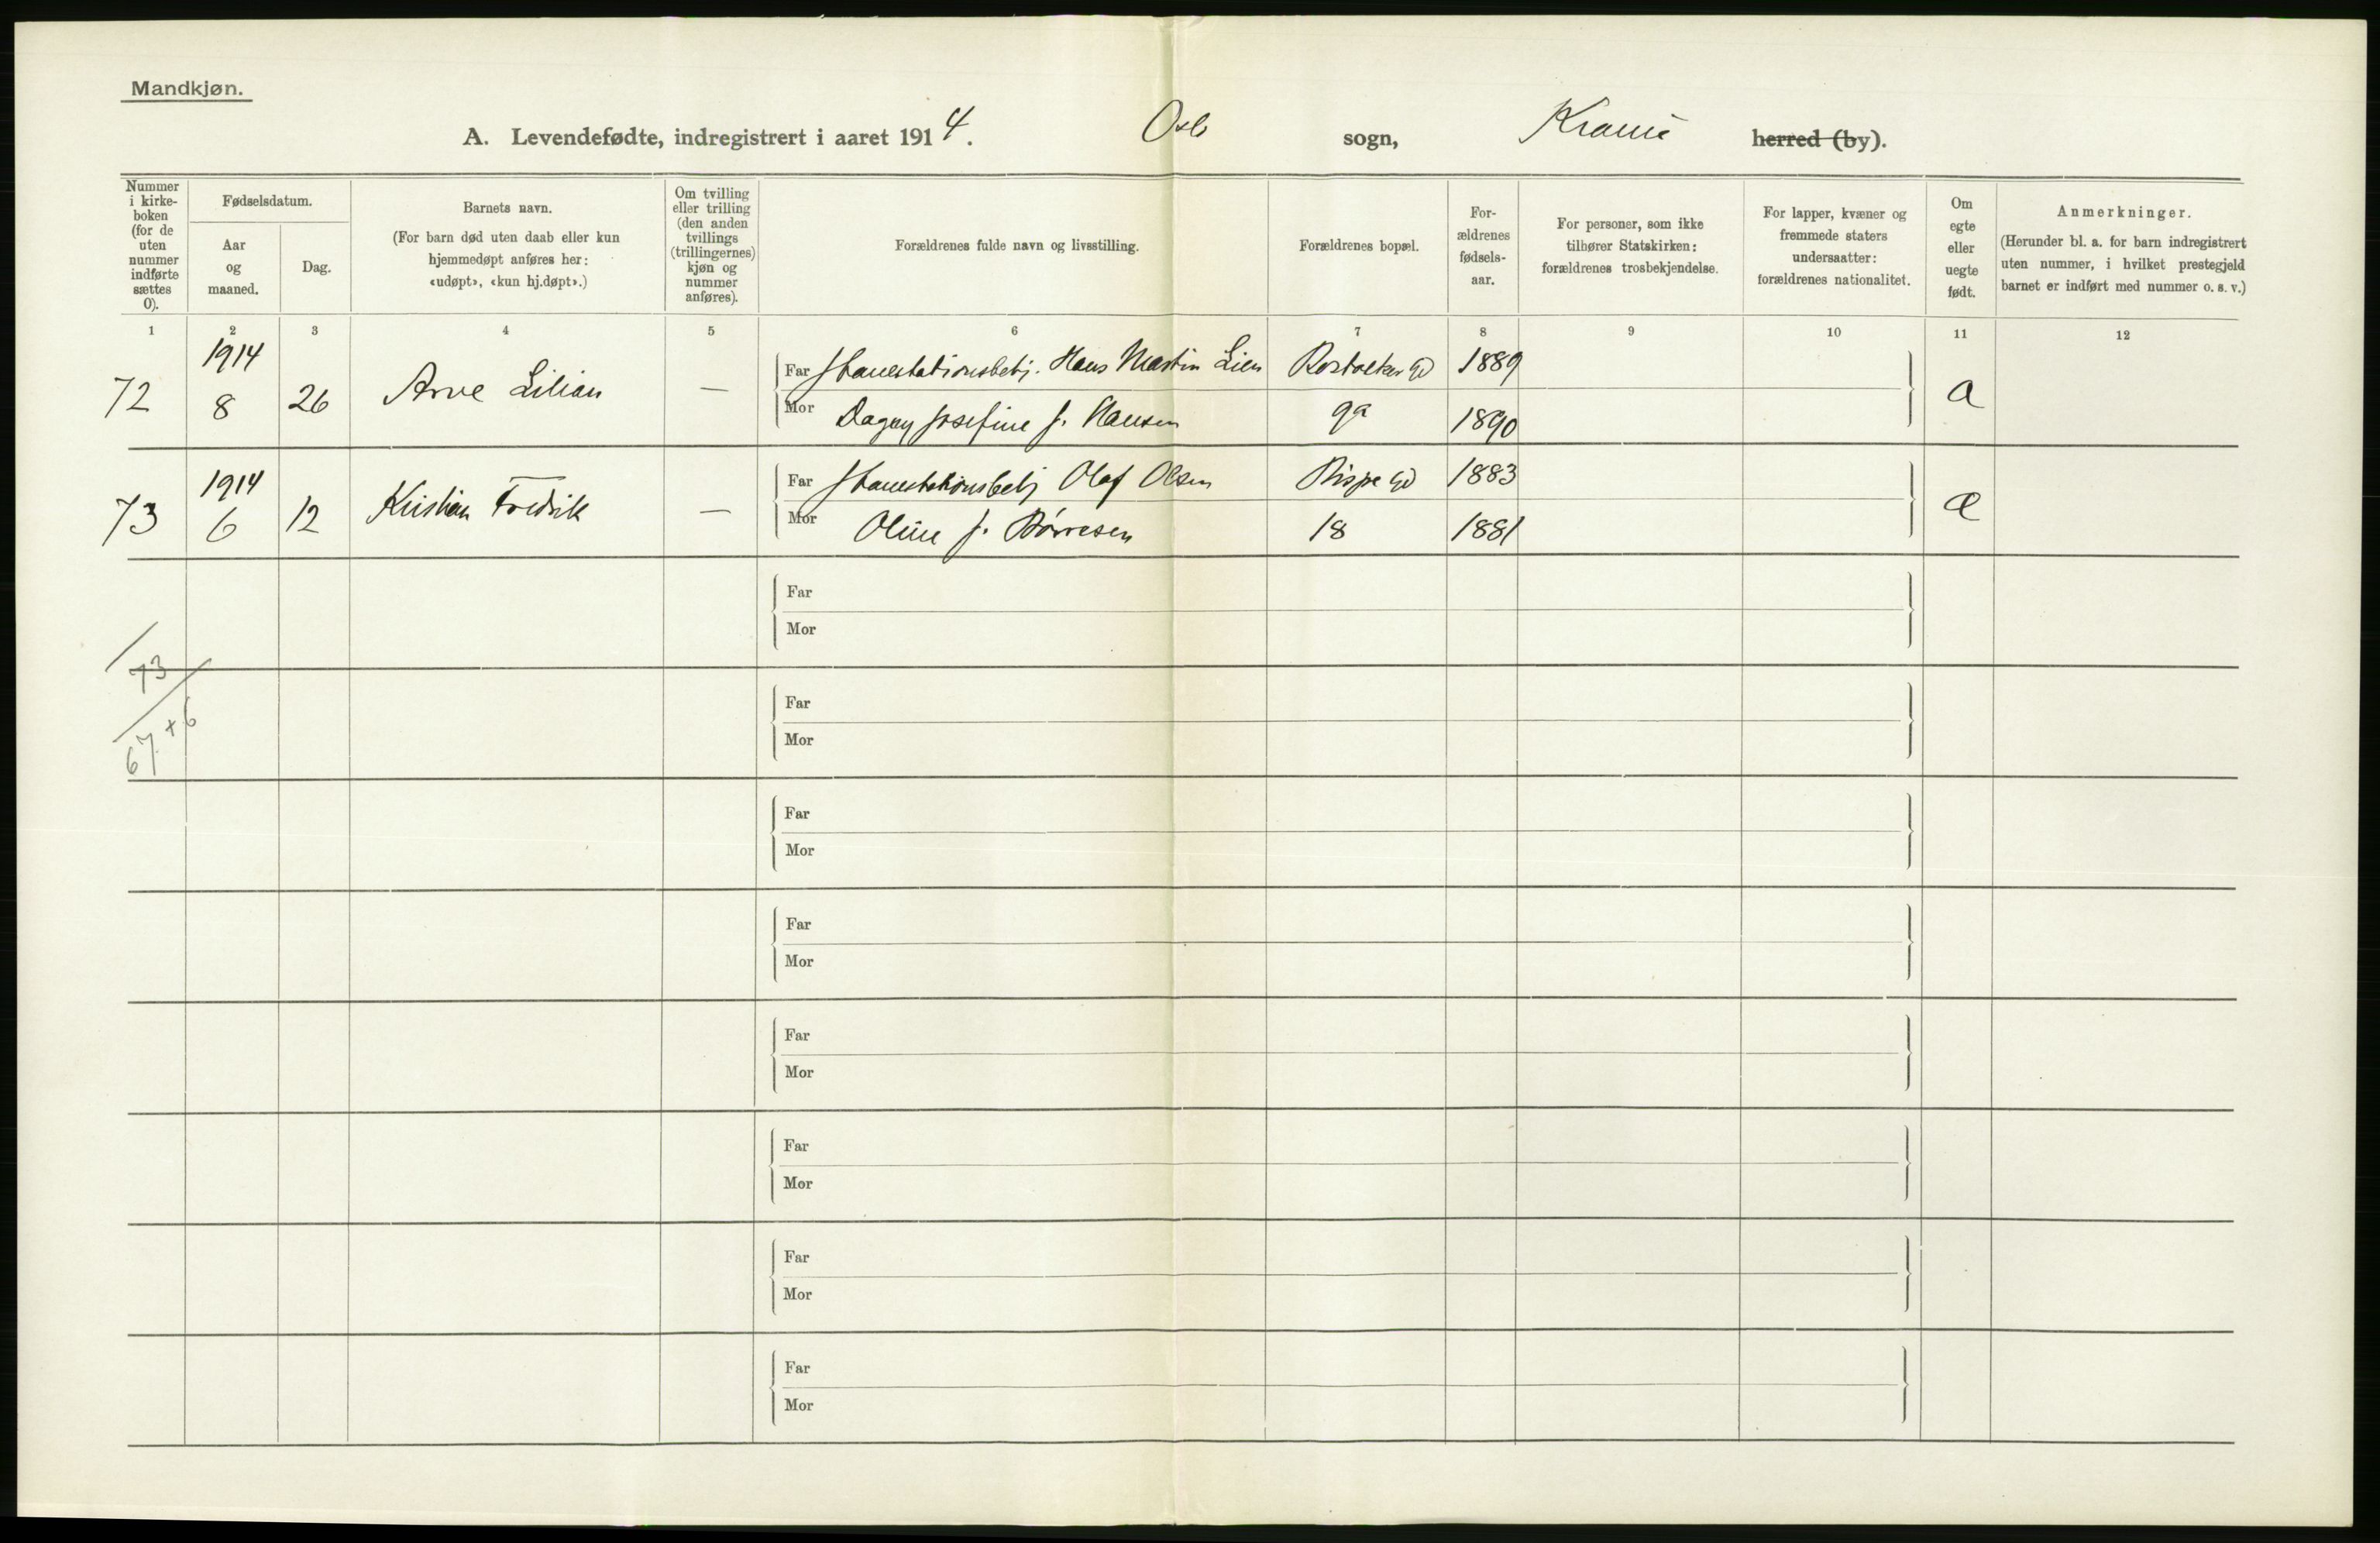 Mandkjøn.
A. Levendefødte, indregistrert i aaret 1914. Oslo sogn, Krania herred (by).
Nummer i kirke-boken (for de uten nummer indførte sættes 0).
Fødselsdatum.
Aar og maaned.
Dag.
Barnets navn.
(For barn død uten daab eller kun hjemmedøpt anføres her: «udøpt», «kun hj.døpt».)
Om tvilling eller trilling (den anden tvillings (trillingernes) kjøn og nummer anføres).
Forældrenes fulde navn og livsstilling.
Forældrenes bopæl.
For-ældrenes fødsels-aar.
For personer, som ikke tilhører Statskirken: forældrenes trosbekjendelse.
For lapper, kvæner og fremmede staters undersaatter: forældrenes nationalitet.
Om egte eller uegte født.
Anmerkninger.
(Herunder bl. a. for barn indregistrert uten nummer, i hvilket prestegjeld barnet er indført med nummer o. s. v.)
1 2 3 4 5 6 7 8 9 10 11 12
72 1914 8 26 Arve Lilian — Far Hans Martin Lien 1889
Mor Dagny Josefine f. Hansen 9a 1890
73 1914 6 12 Kristian Fredrik — Far Olaf Olsen Bispe gd 1883 æ
Mor Oline f. Børresen 18 1881
Far
Mor
73
67+6
Far
Mor
Far
Mor
Far
Mor
Far
Mor
Far
Mor
Far
Mor
Far
Mor